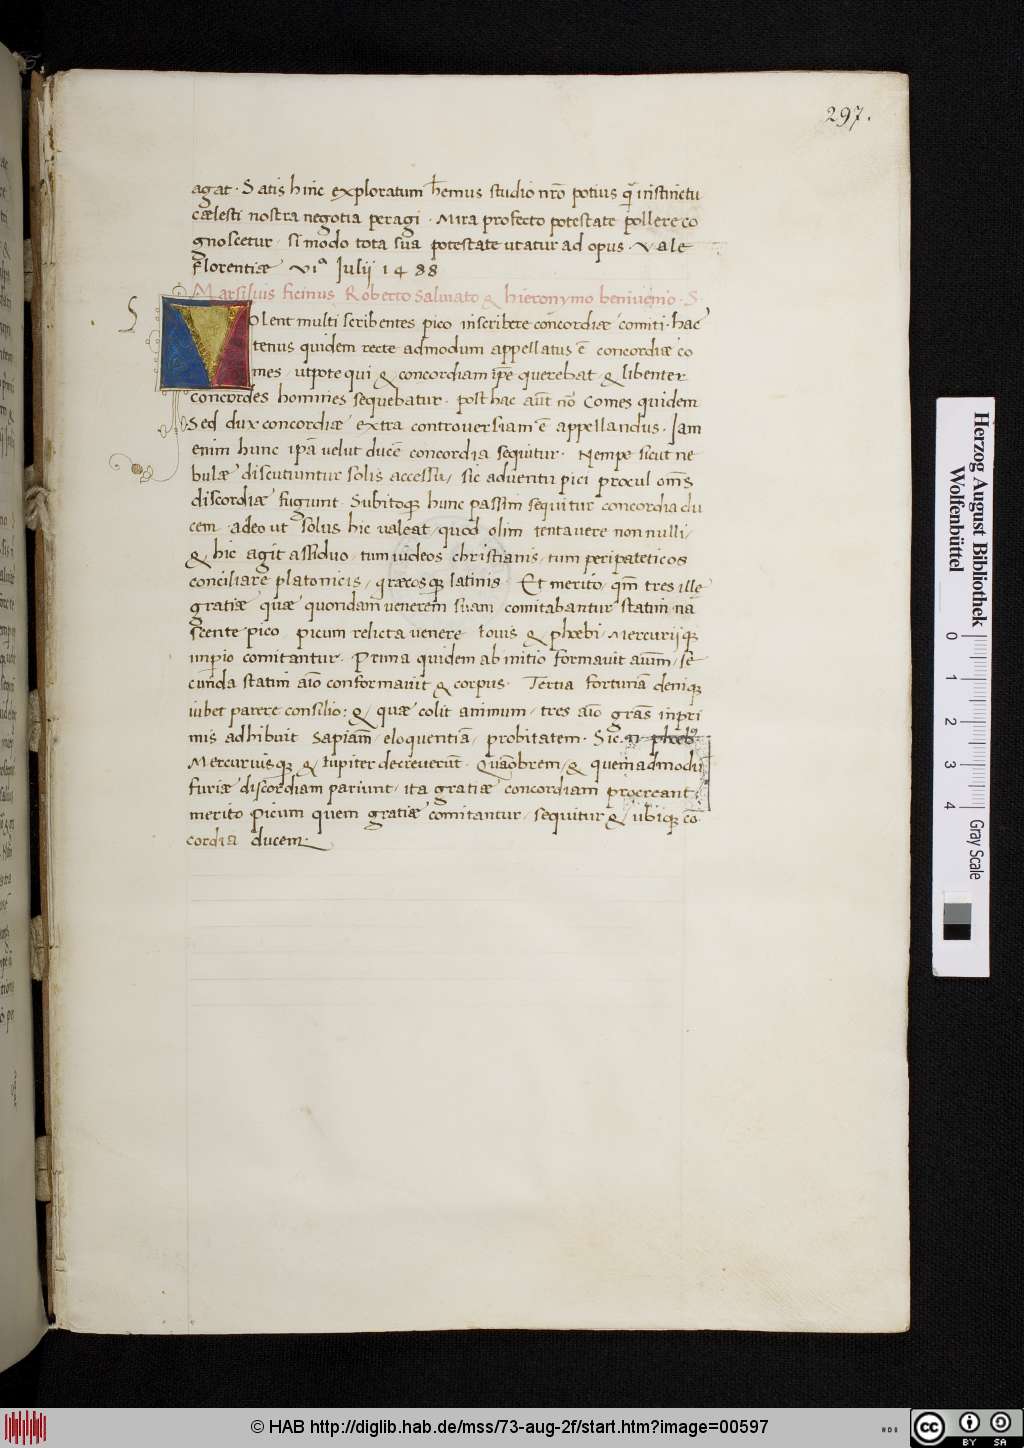 297.
agat · Satis hinc exploratum hemus studio nr̄o potius q̄ instinctu
cælesti nostra negotia peragi · Mira profecto potestate pollere co
gnoscetur · si modo tota sua potestate utatur ad opus · Vale
Florentiæ VIᵃ Julii 1488
Marsilius ficinus Roberto Salviato & hieronymo benivenio · S ·
S
Volent multi scribentes pico inscribere concordiæ comiti · hac
tenus quidem recte admodum appellatus ē concordiæ co
mes / utpote qui & concordiam ip̄e querebat / & libenter
concordes homines sequebatur · post hac aūt nō Comes quidem
Sed dux concordiæ extra controversiam ē appellandus · Jam
enim hunc ipām velut ducē concordia sequitur · Nempe sicut ne
bulæ discutiuntur solis accessu / sic adventu pici procul om̄s
discordiæ fugiunt · Subitoqȝ hunc passim sequitur concordia du
cem · adeo ut solus hic valeat / quod olim tentavere non nulli /
& hic agit assiduo / tum iudeos christianis / tum peripateticos
conciliare platonicis / græcosqȝ latinis · Et merito / qm̄ tres ille
gratiæ quæ quondam venerem suam / comitabantur statim na
scente pico / picum relicta venere Iovis & phœbi / Mercuriiqȝ
imperio comitantur · Prima quidem ab initio formavit avum / se
cunda statim aīo conformavit & corpus · Tertia fortunam deniqȝ
iubet parere consilio: & / quæ colit animum / tres aīo grās inpri
mis adhibuit Sapiam̄ / eloquentiā / probitatem · Sic · n · phœbꝰ
Mercuriusqȝ & Iupiter decreverūt · Quāobrem / & quemadmodū
furiæ discordiam pariunt / ita gratiæ concordiam procreant:
merito picum quem gratiæ comitantur / sequitur & / ubiqȝ cō
cordia ducem
Herzog August Bibliothek
Wolfenbüttel
0 1 2 3 4
Gray Scale
© HAB http://diglib.hab.de/mss/73-aug-2f/start.htm?image=00597
HAB
cc BY SA